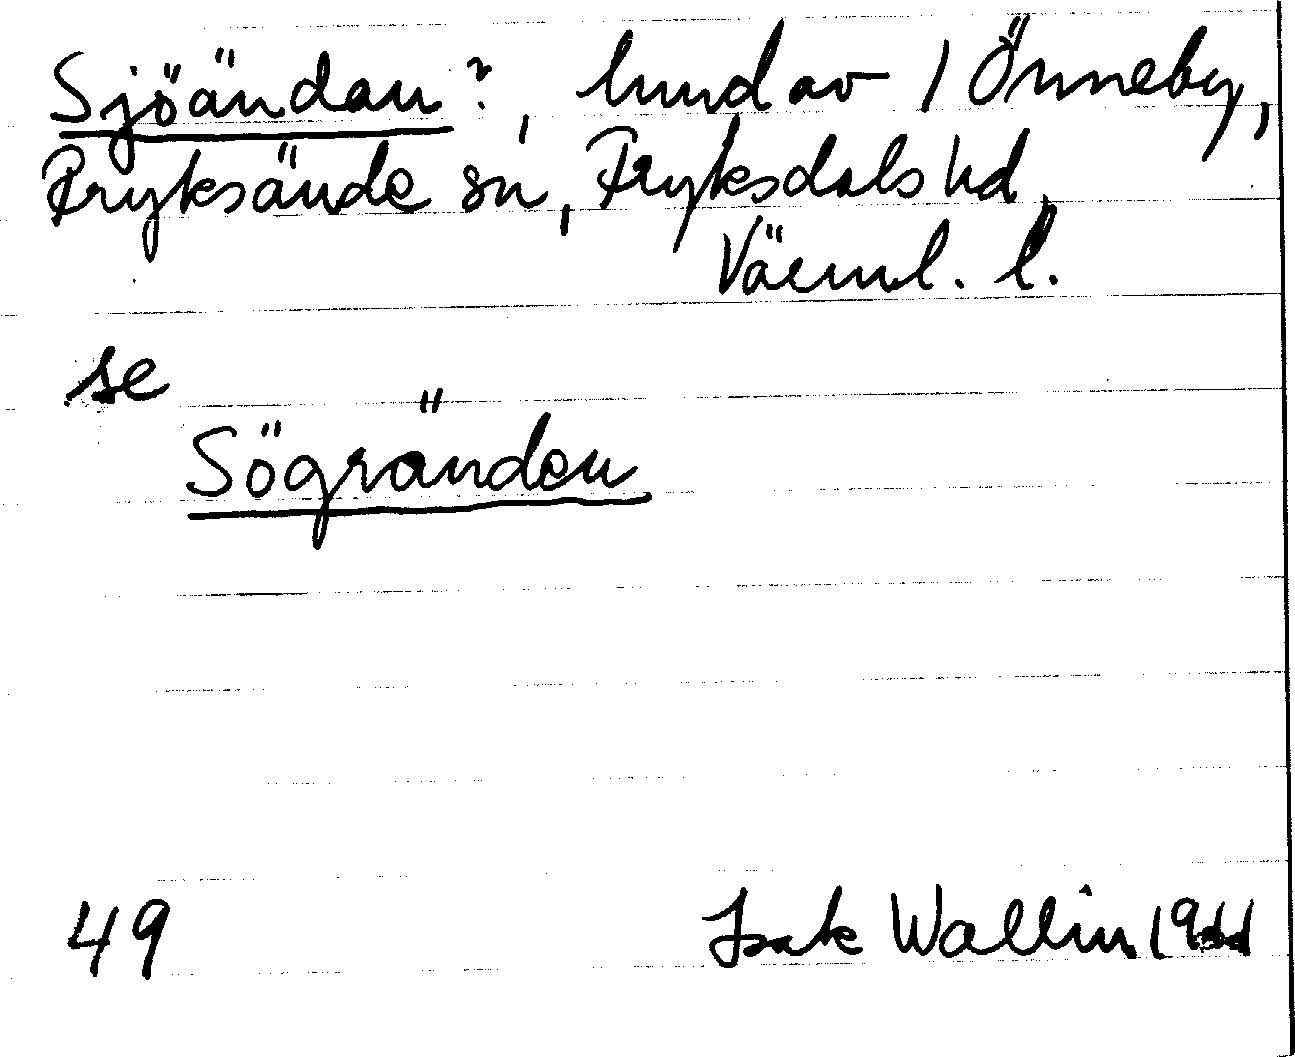 Sjöändan?, hmd av 1 Önneby,
Fryksände sn, Fryksdals hd,
Värml. l.
se
Sögränden
49 Isak Wallin 1944